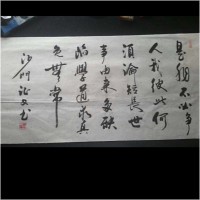 是非不必爭
人我彼此何
須論短長世
事由來多缺
陷學道求真
免無常
沙門